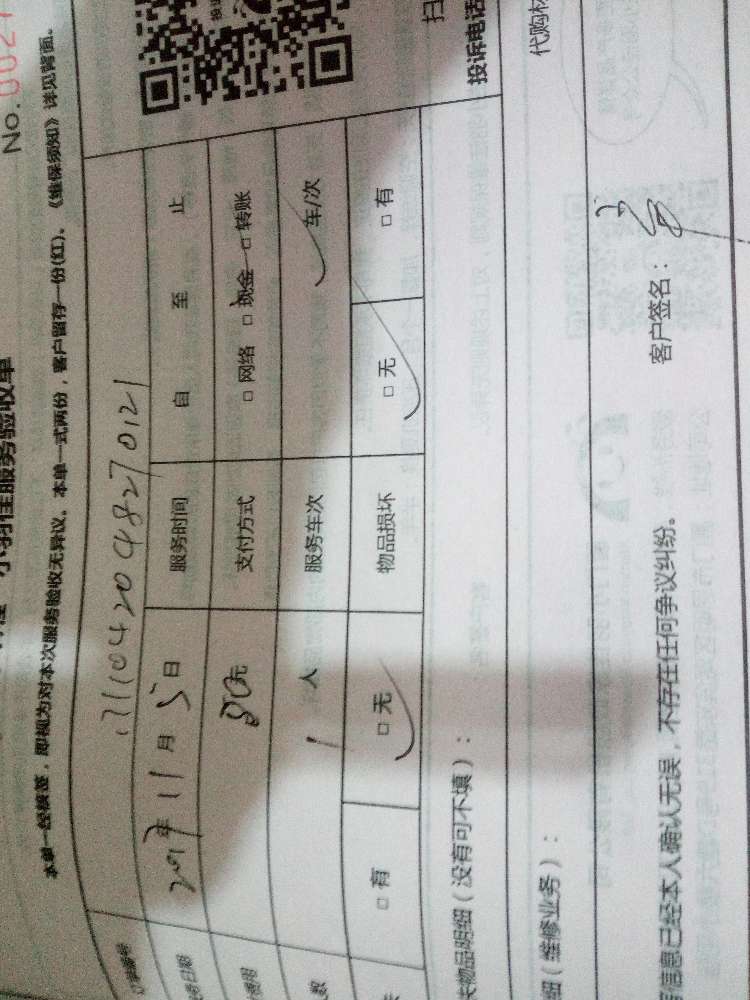 No.0021
服务验收单
本单一经核签，即视为对本次服务验收无异议。本单一式两份，客户留存一份(红)。《维保须知》详见背面。
1711042048270121
2017年11月5日 服务时间 自 至 止
80元 支付方式 □ 网络 □ 现金 □ 转账
数 1人 服务车次 车/次
□ 有 □ 无 物品损坏 □ 无 □ 有
物品明细（没有可不填）： 投诉电话
细（维修业务）： 代购材
信息已经本人确认无误，不存在任何争议纠纷。 客户签名：